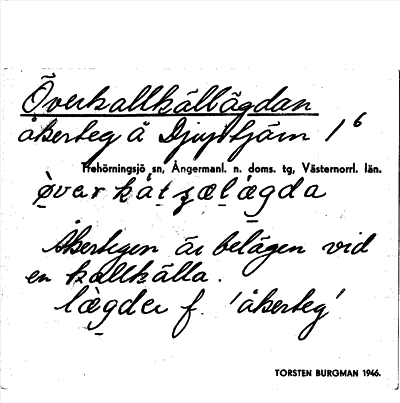 Överkallkällägdan
åkerteg å Djuptjärn 1⁶
Trehörningsjö sn, Ångermanl. n. doms. tg, Västernorrl. län.
åkertegen är belägen vid
en kallkälla.
lägder f. 'åkerteg'
TORSTEN BURGMAN 1946.